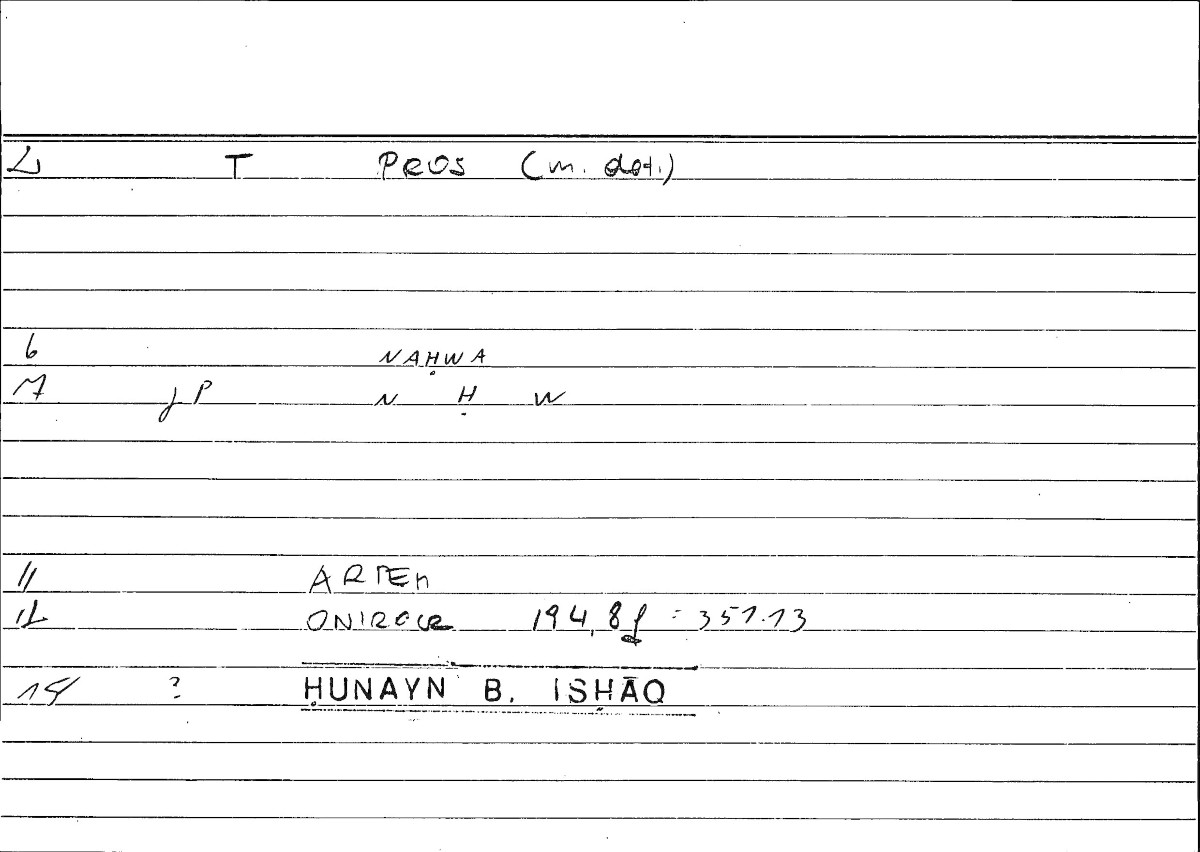 2 T PROS (m. dat.)
6 NAḤWA
7 P N Ḥ W
11 ARTEM
12 ONIROCR 194,8f = 351.13
14 ? ḤUNAYN B. ISḤĀQ